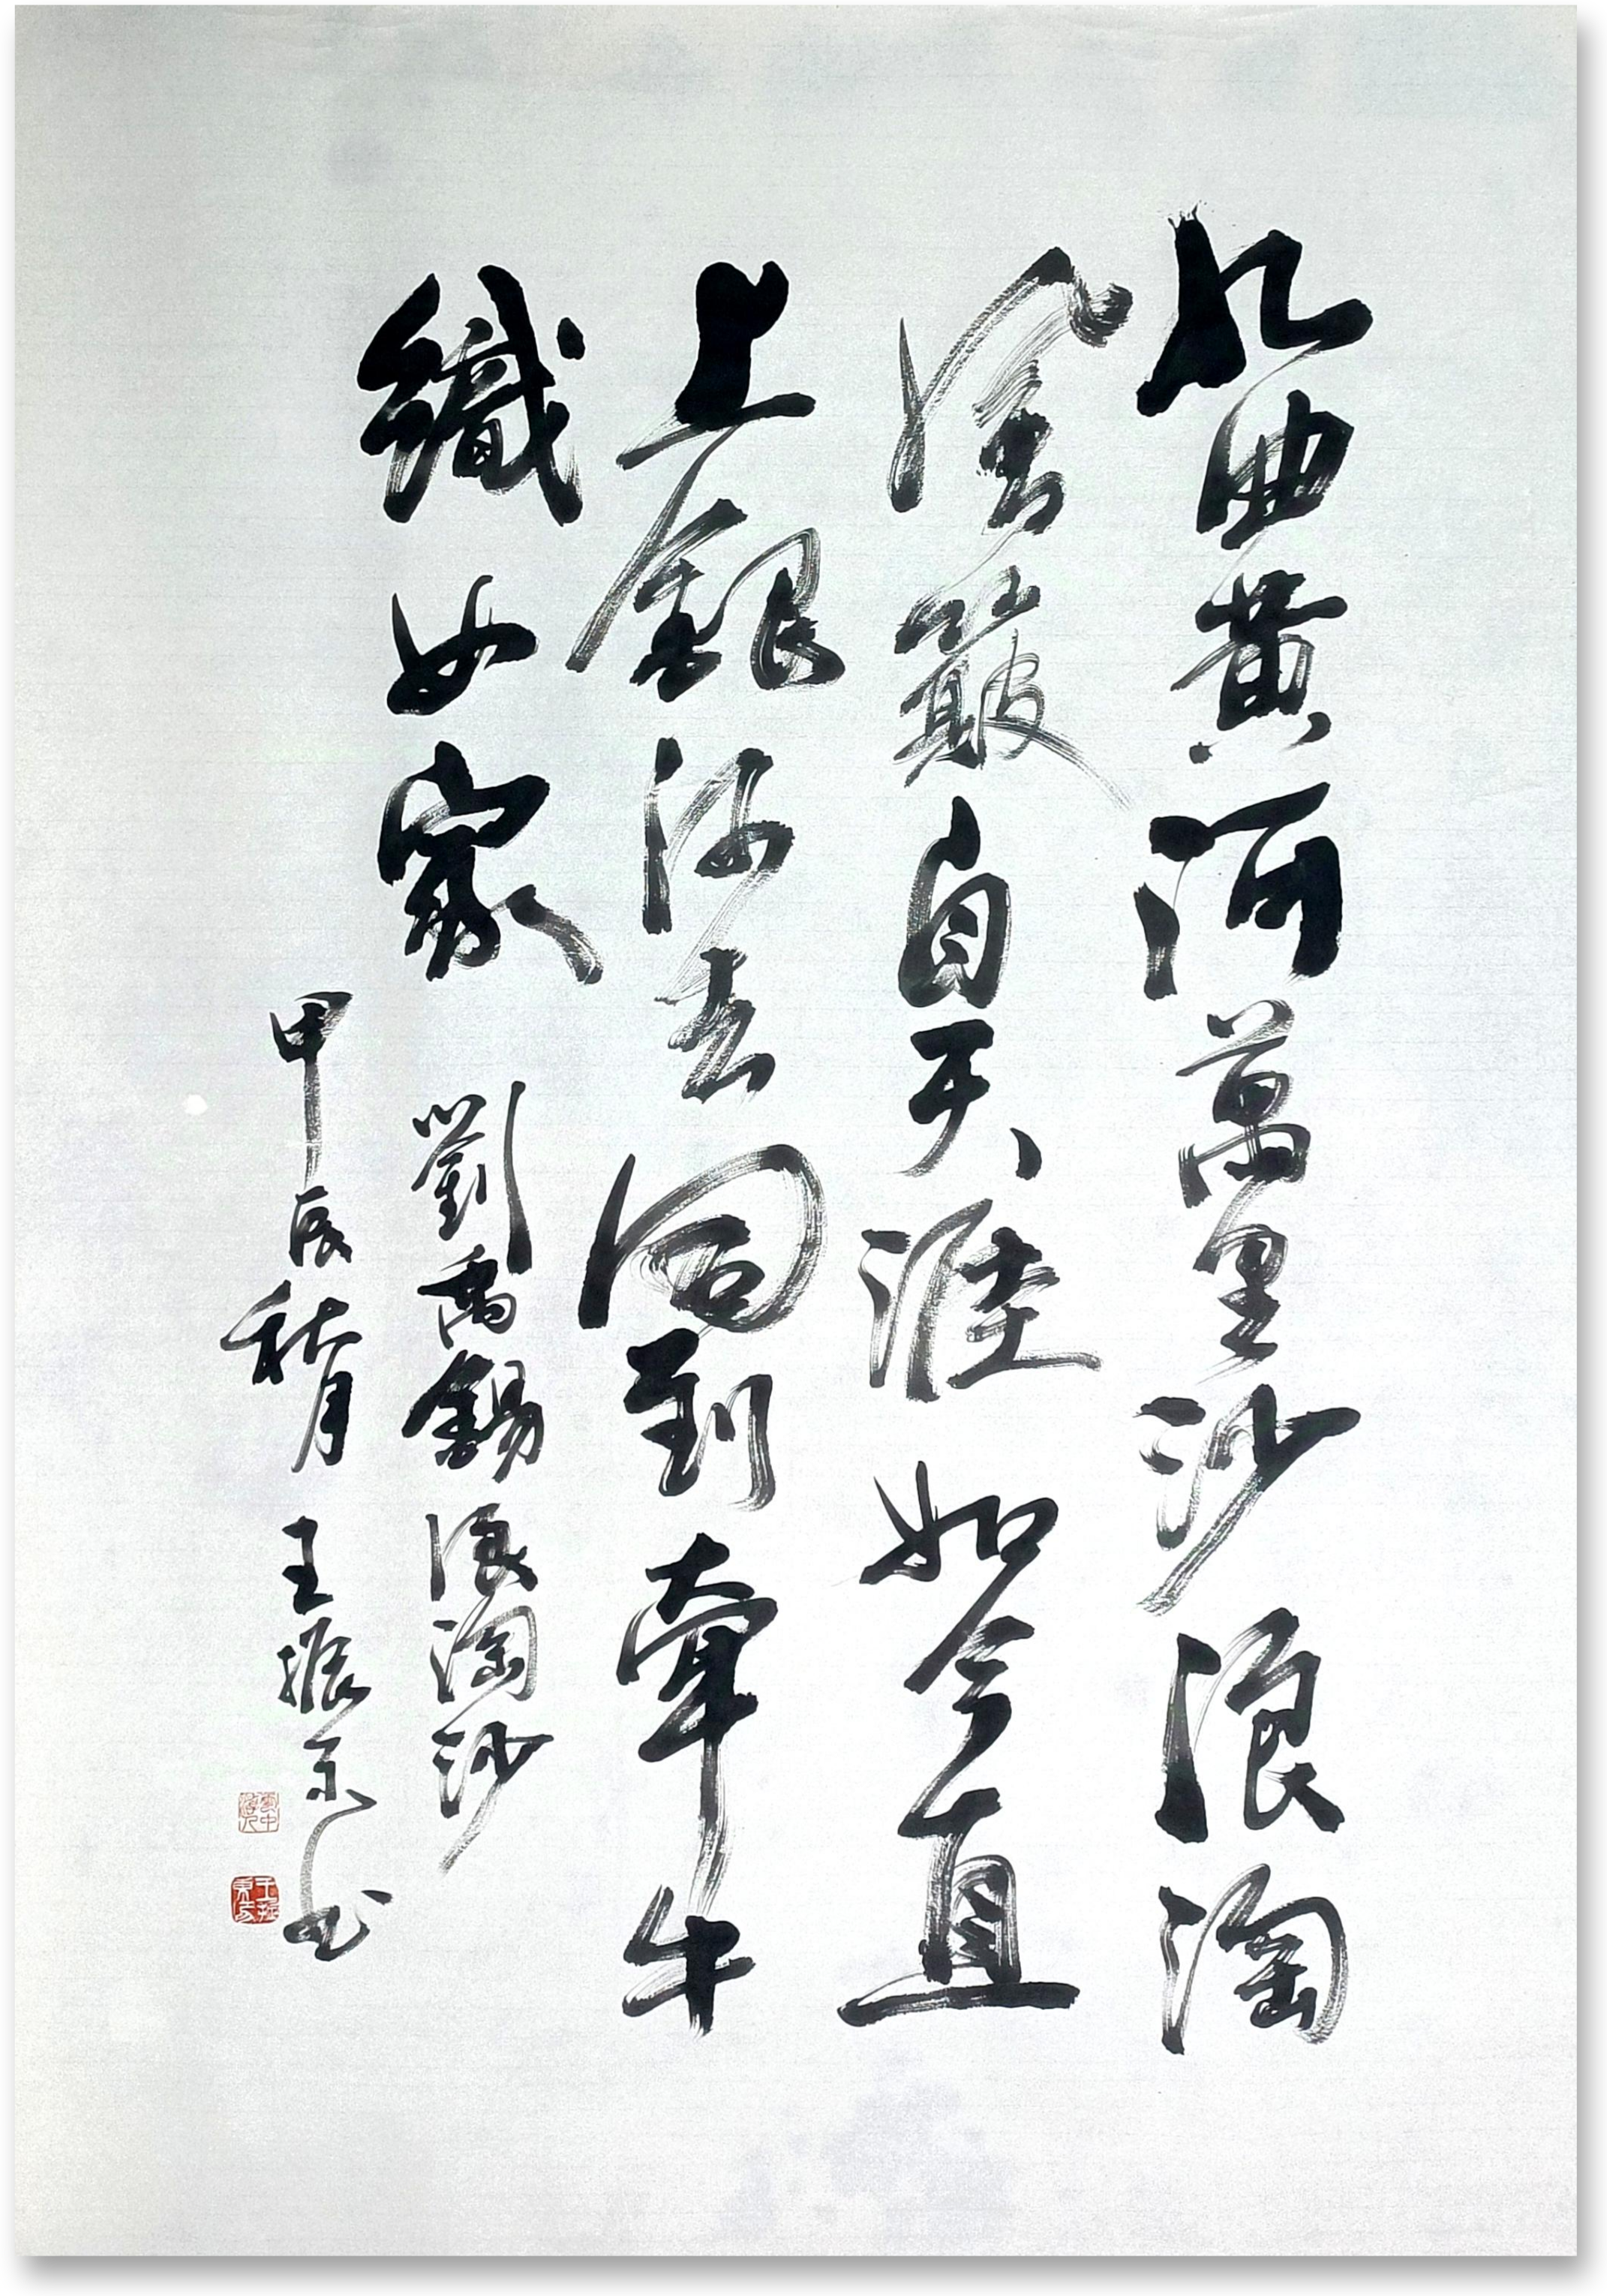 九曲黄河萬里沙浪淘
風簸自天涯如今直
上銀河去同到牽牛
織女家 劉禹錫浪淘沙
甲辰秋月 王振东书